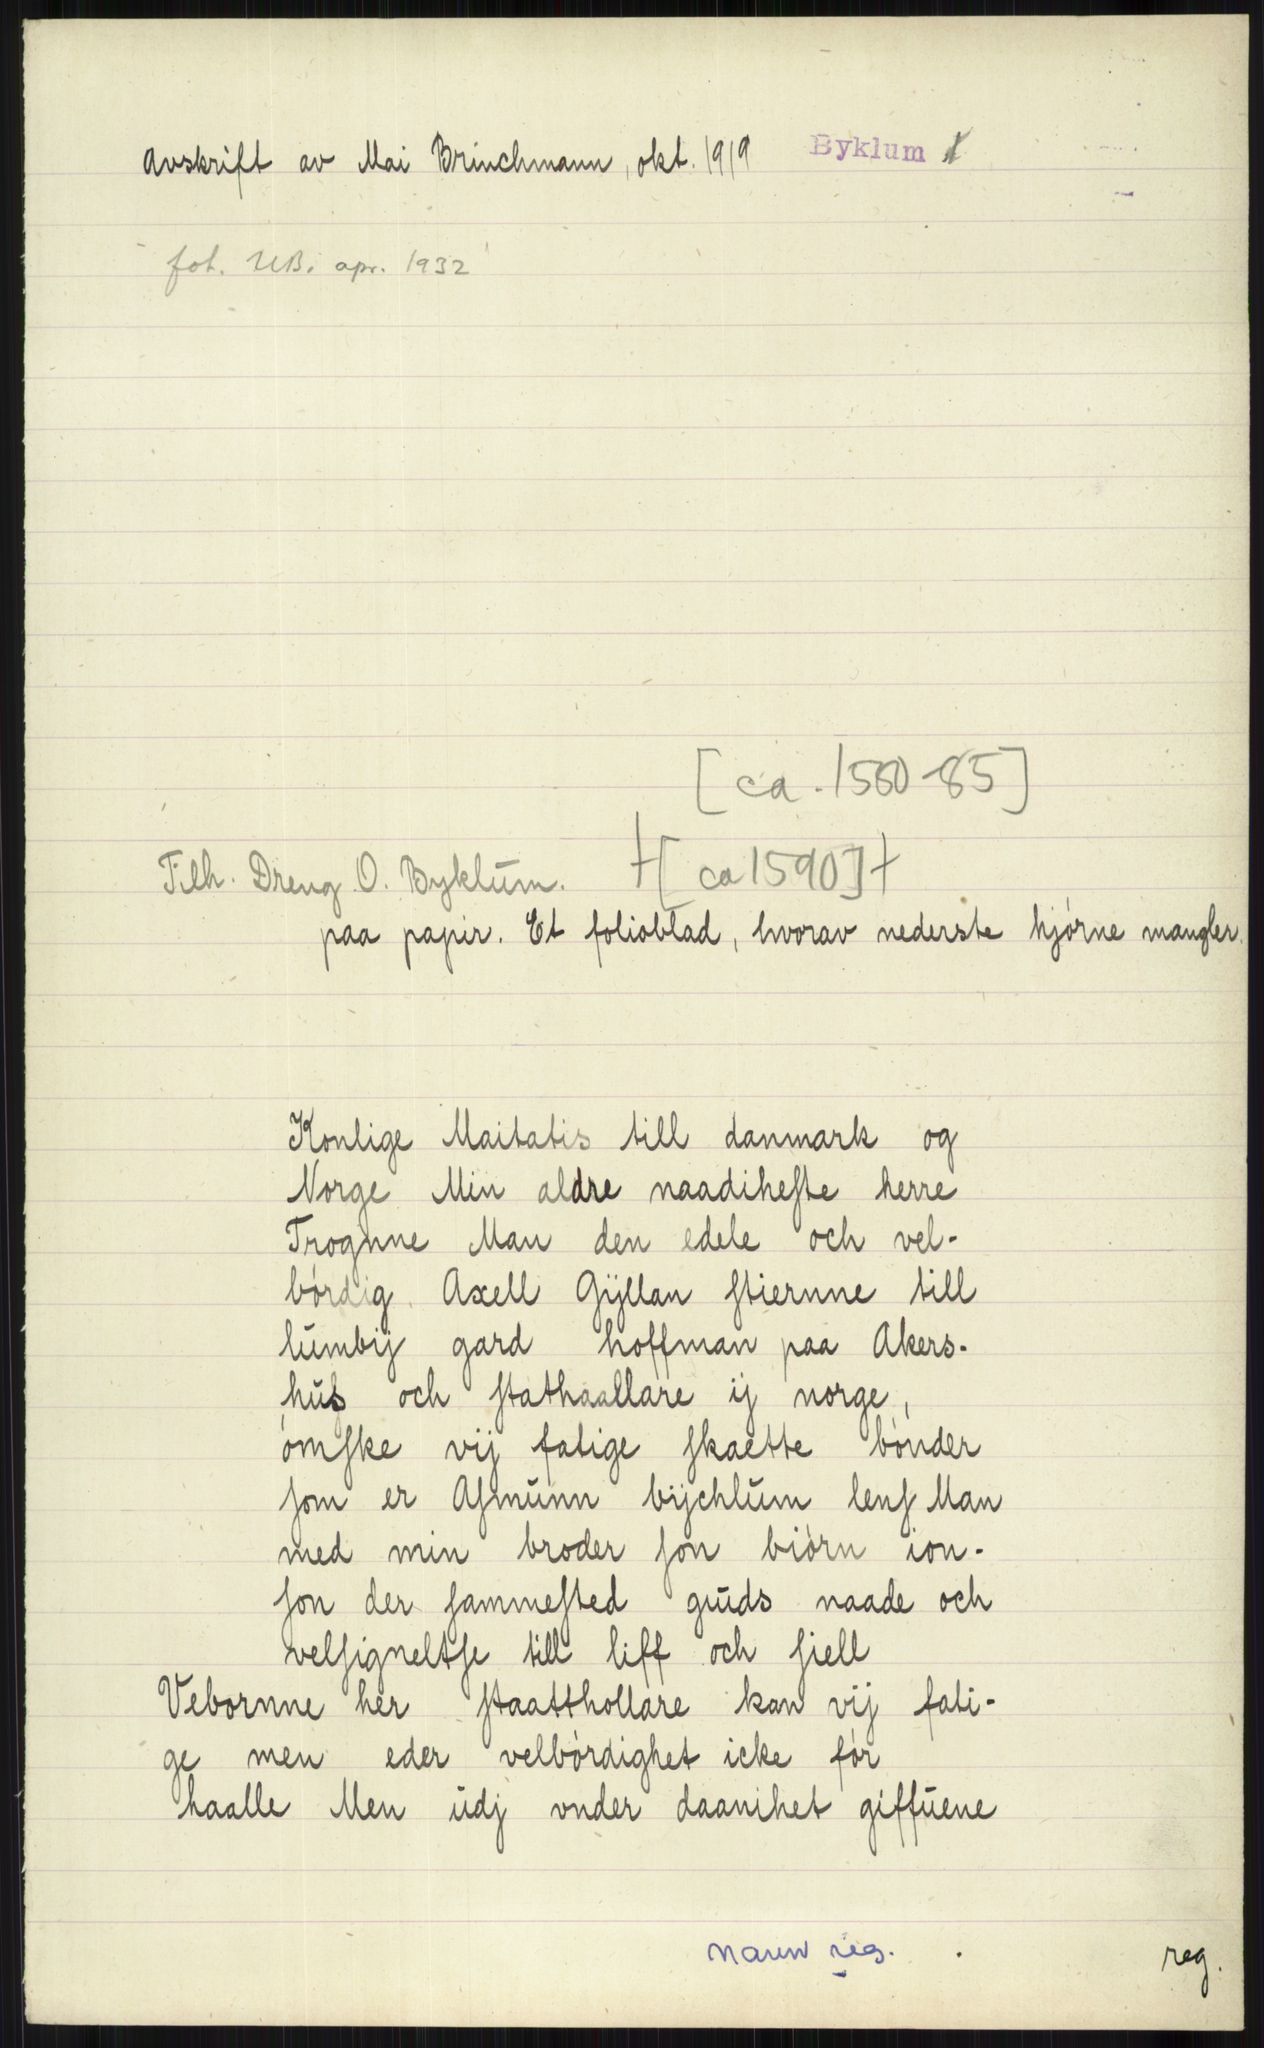 Avskrift av Mai Brinchmann, okt. 1919 Byklum
fot. UB. apr. 1932
[ca. 1580-85]
Tilh. Dreng O. Byklum. +[ca 1590]+
paa papir. Et folioblad, hvorav nederste hjørne mangler.
Konlige Maitatis till danmark og
Norge Min aldre naadiheſte herre
Trognne Man den edele och vel-
bórdig Axell Gÿllan ſtiernne till
lumbij gard hoffman paa Akers-
hus och ſtathaallare ij norge,
ómſke vij fatige ſkaette bónder
ſom er Aſmunn bijchlum lenſ Man
med min broder ſon biórn ion-
ſon der ſammeſted guds naade och
velſigneltſe till liff och ſiell
Vebornne her ſtaatthollare kan vij fati-
ge men eder velbórdighet icke fór
haalle Men udj vnder daanihet giffuene
navn reg.
reg.